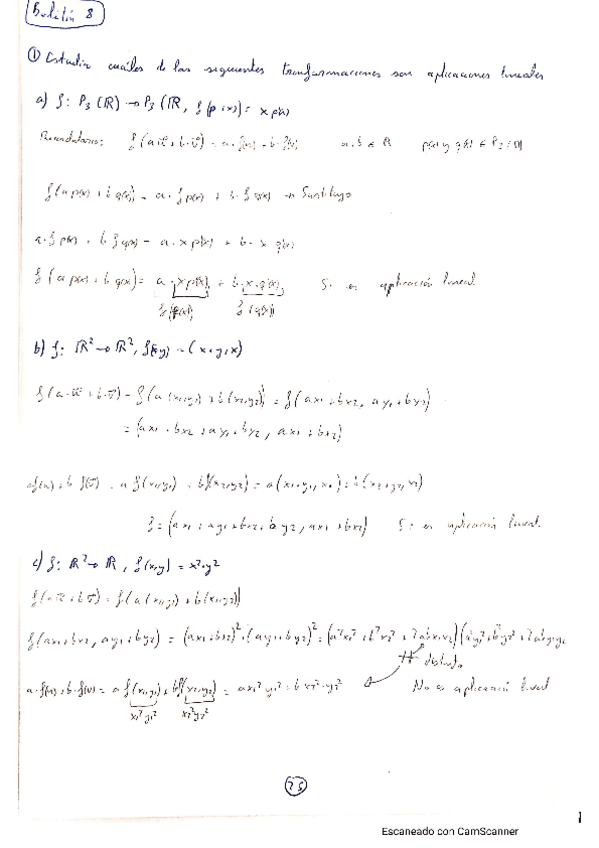 Boletín 8
① Estudia cuáles de las siguientes transformaciones son aplicaciones lineales
a) f: P₃(ℝ) → P₃(ℝ, f(p(x)) = x p(x)
Recordatorio: f(a·u + b·v) = a·f(u) + b·f(v) a, b ∈ ℝ p(x) y q(x) ∈ P₃(ℝ)
f(a p(x) + b q(x)) = a · f p(x) + b · f q(x) →
a · f p(x) + b f q(x) = a · x p(x) + b · x q(x)
f(a p(x) + b q(x)) = a · x p(x) + b · x · q(x) Si es aplicación lineal
f(p(x)) f(q(x))
b) f: ℝ² → ℝ², f(x,y) = (x+y, x)
f(a·u + b·v) = f(a(x₁,y₁) + b(x₂,y₂)) = f(ax₁ + bx₂, ay₁ + by₂)
= (ax₁ + bx₂ + ay₁ + by₂, ax₁ + bx₂)
af(u) + b f(v) = a f(x₁,y₁) + bf(x₂,y₂) = a(x₁+y₁, x₁) + b(x₂+y₂, x₂)
= (ax₁ + ay₁ + bx₂ + by₂, ax₁ + bx₂) Si es aplicación lineal
c) f: ℝ² → ℝ, f(x,y) = x²·y²
f(au + bv) = f(a(x₁,y₁) + b(x₂,y₂))
f(ax₁+bx₂, ay₁+by₂) = (ax₁+bx₂)²·(ay₁+by₂)² = (a²x₁² + b²x₂² + 2abx₁x₂)(a²y₁² + b²y₂² + 2aby₁y₂
distinto
a·f(u) + b·f(v) = a f(x₁,y₁) + bf(x₂,y₂) = ax₁²y₁² + bx₂²·y₂² No es aplicación lineal
x₁²y₁² x₂²y₂²
25
1
Escaneado con CamScanner